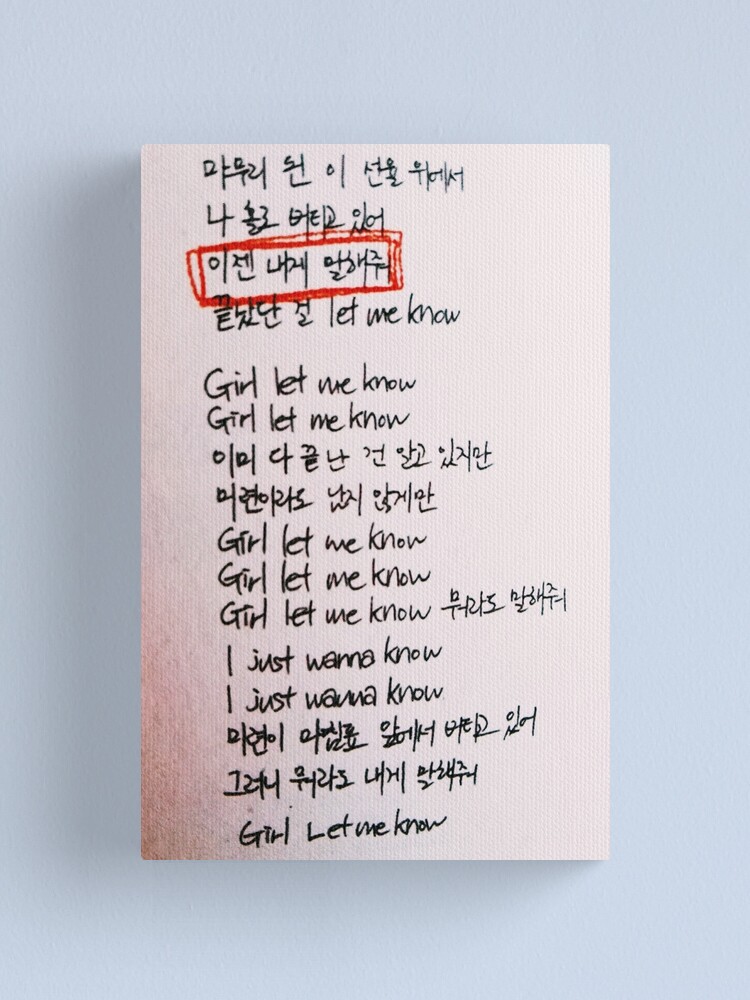 먀무리 된 이 선율 위에서
나 홀로 버티고 있어
이젠 내게 말해줘
끝났단 걸 let me know
Girl let me know
Girl let me know
이미 다 끝난 건 알고 있지만
미련이라도 남지 않게만
Girl let me know
Girl let me know
Girl let me know 뭐라도 말해줘
I just wanna know
I just wanna know
미련이 마침표 앞에서 버티고 있어
그러니 뭐라도 내게 말해줘
Girl Let me know